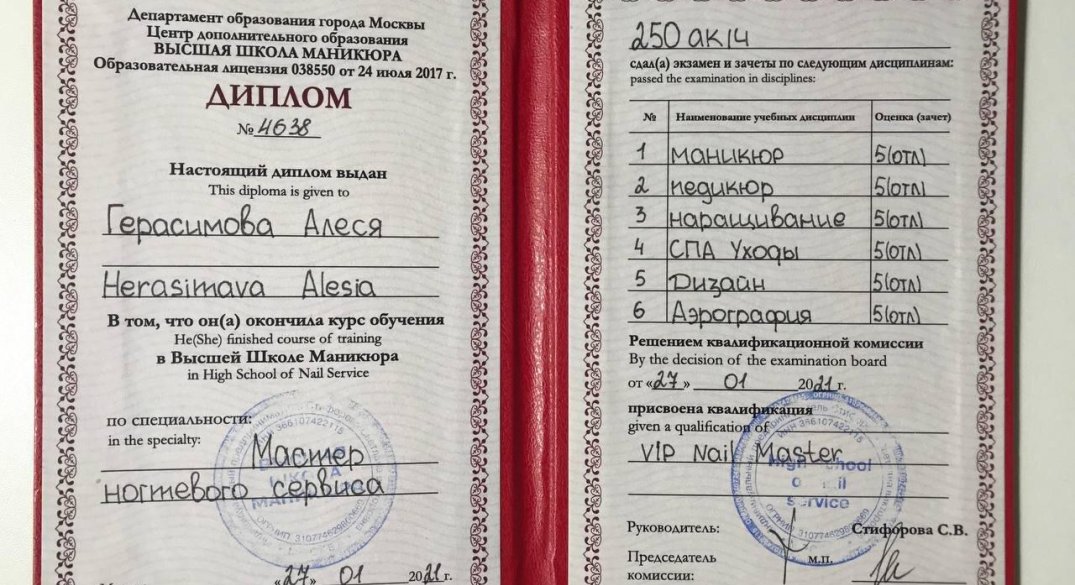 Департамент образования города Москвы
Центр дополнительного образования
ВЫСШАЯ ШКОЛА МАНИКЮРА
Образовательная лицензия 038550 от 24 июля 2017 г.
ДИПЛОМ
№ 4638
Настоящий диплом выдан
This diploma is given to
Герасимова Алеся
Herasimava Alesia
В том, что он(а) окончила курс обучения
He(She) finished course of training
в Высшей Школе Маникюра
in High School of Nail Service
по специальности:
in the specialty:
Мастер
ногтевого сервиса
«27» 01 2021 г.
250 ак/ч
сдал(а) экзамен и зачеты по следующим дисциплинам:
passed the examination in disciplines:
№ Наименование учебных дисциплин Оценка (зачет)
1 маникюр 5(отл)
2 педикюр 5(отл)
3 наращивание 5(отл)
4 СПА Уходы 5(отл)
5 Дизайн 5(отл)
6 Аэрография 5(отл)
Решением квалификационной комиссии
By the decision of the examination board
от «27» 01 2021 г.
присвоена квалификация
given a qualification of
VIP Nail Master
High School
of Nail
Service
Руководитель: Стифорова С.В.
Председатель м.п.
комиссии: